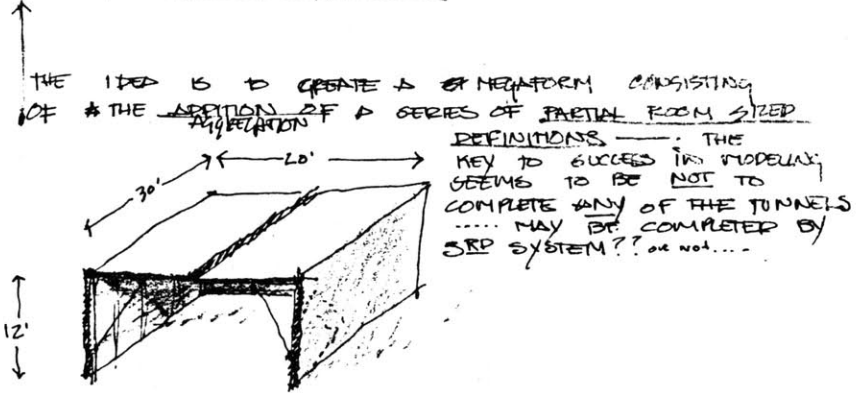 THE IDEA IS TO CREATE A MEGAFORM CONSISTING
OF THE ADDITION OF A SERIES OF PARTIAL ROOM SIZED
AGGREGATION
DEFINITIONS ——. THE
KEY TO SUCCESS IN MODELING
SEEMS TO BE NOT TO
COMPLETE ANY OF THE TUNNELS
..... MAY BE COMPLETED BY
3RD SYSTEM?? OR NOT....
30'
20'
12'